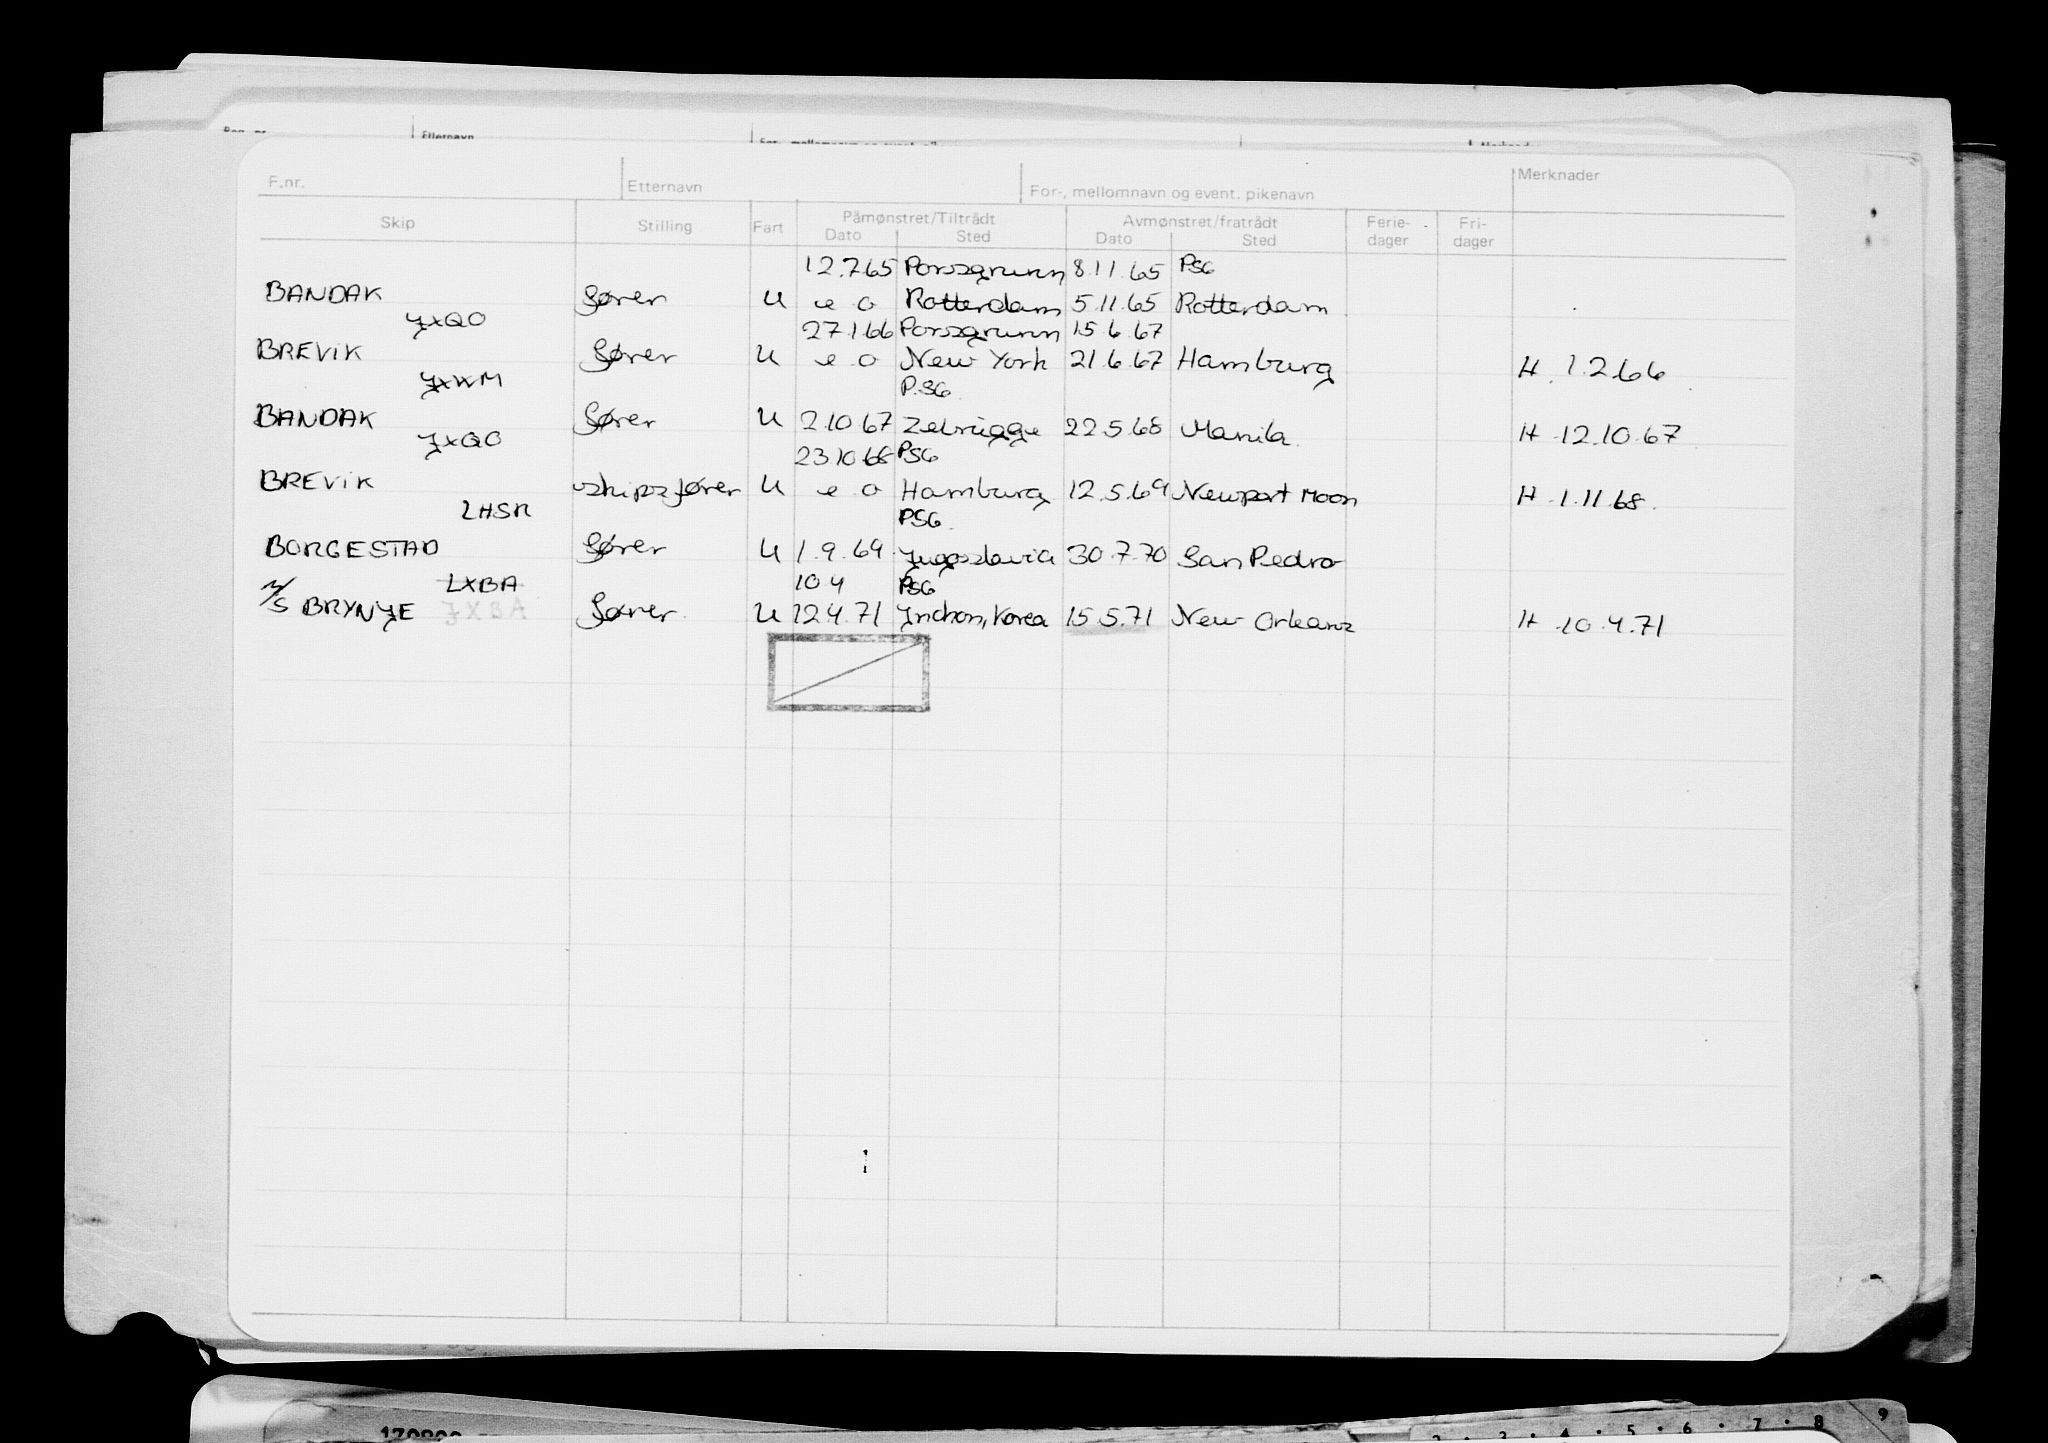 F.nr. Etternavn For-, mellomnavn og event. pikenavn Merknader
Skip Stilling Fart Påmønstret/Tiltrådt Avmønstret/fratrådt Ferie- Fri-
Dato Sted Dato Sted dager dager
12.7.65 Porsgrunn 8.11.65 PSG
BANDAK fører U e o Rotterdam 5.11.65 Rotterdam
JXQO 27.1.66 Porsgrunn 15.6.67
BREVIK fører U e o New York 21.6.67 Hamburg H. 1.2.66
JXWM P.SG.
BANDAK fører U 2.10.67 Zebrügge 22.5.68 Manila. H 12.10.67
JXQO 23.10.68 PSG
BREVIK skipsfører U e o Hamburg 12.5.69 Newport Moon H 1.11.68.
LHSR PSG.
BORGESTAD fører U 1.9.69. Jugoslavia 30.7.70 San Pedro
LXBA 10.4 PSG
M/S BRYNJE JXBA fører. U 12.4.71 Inchon, Korea 15.5.71 New Orleans H 10.4.71
2 3 4 5 6 7 8 9